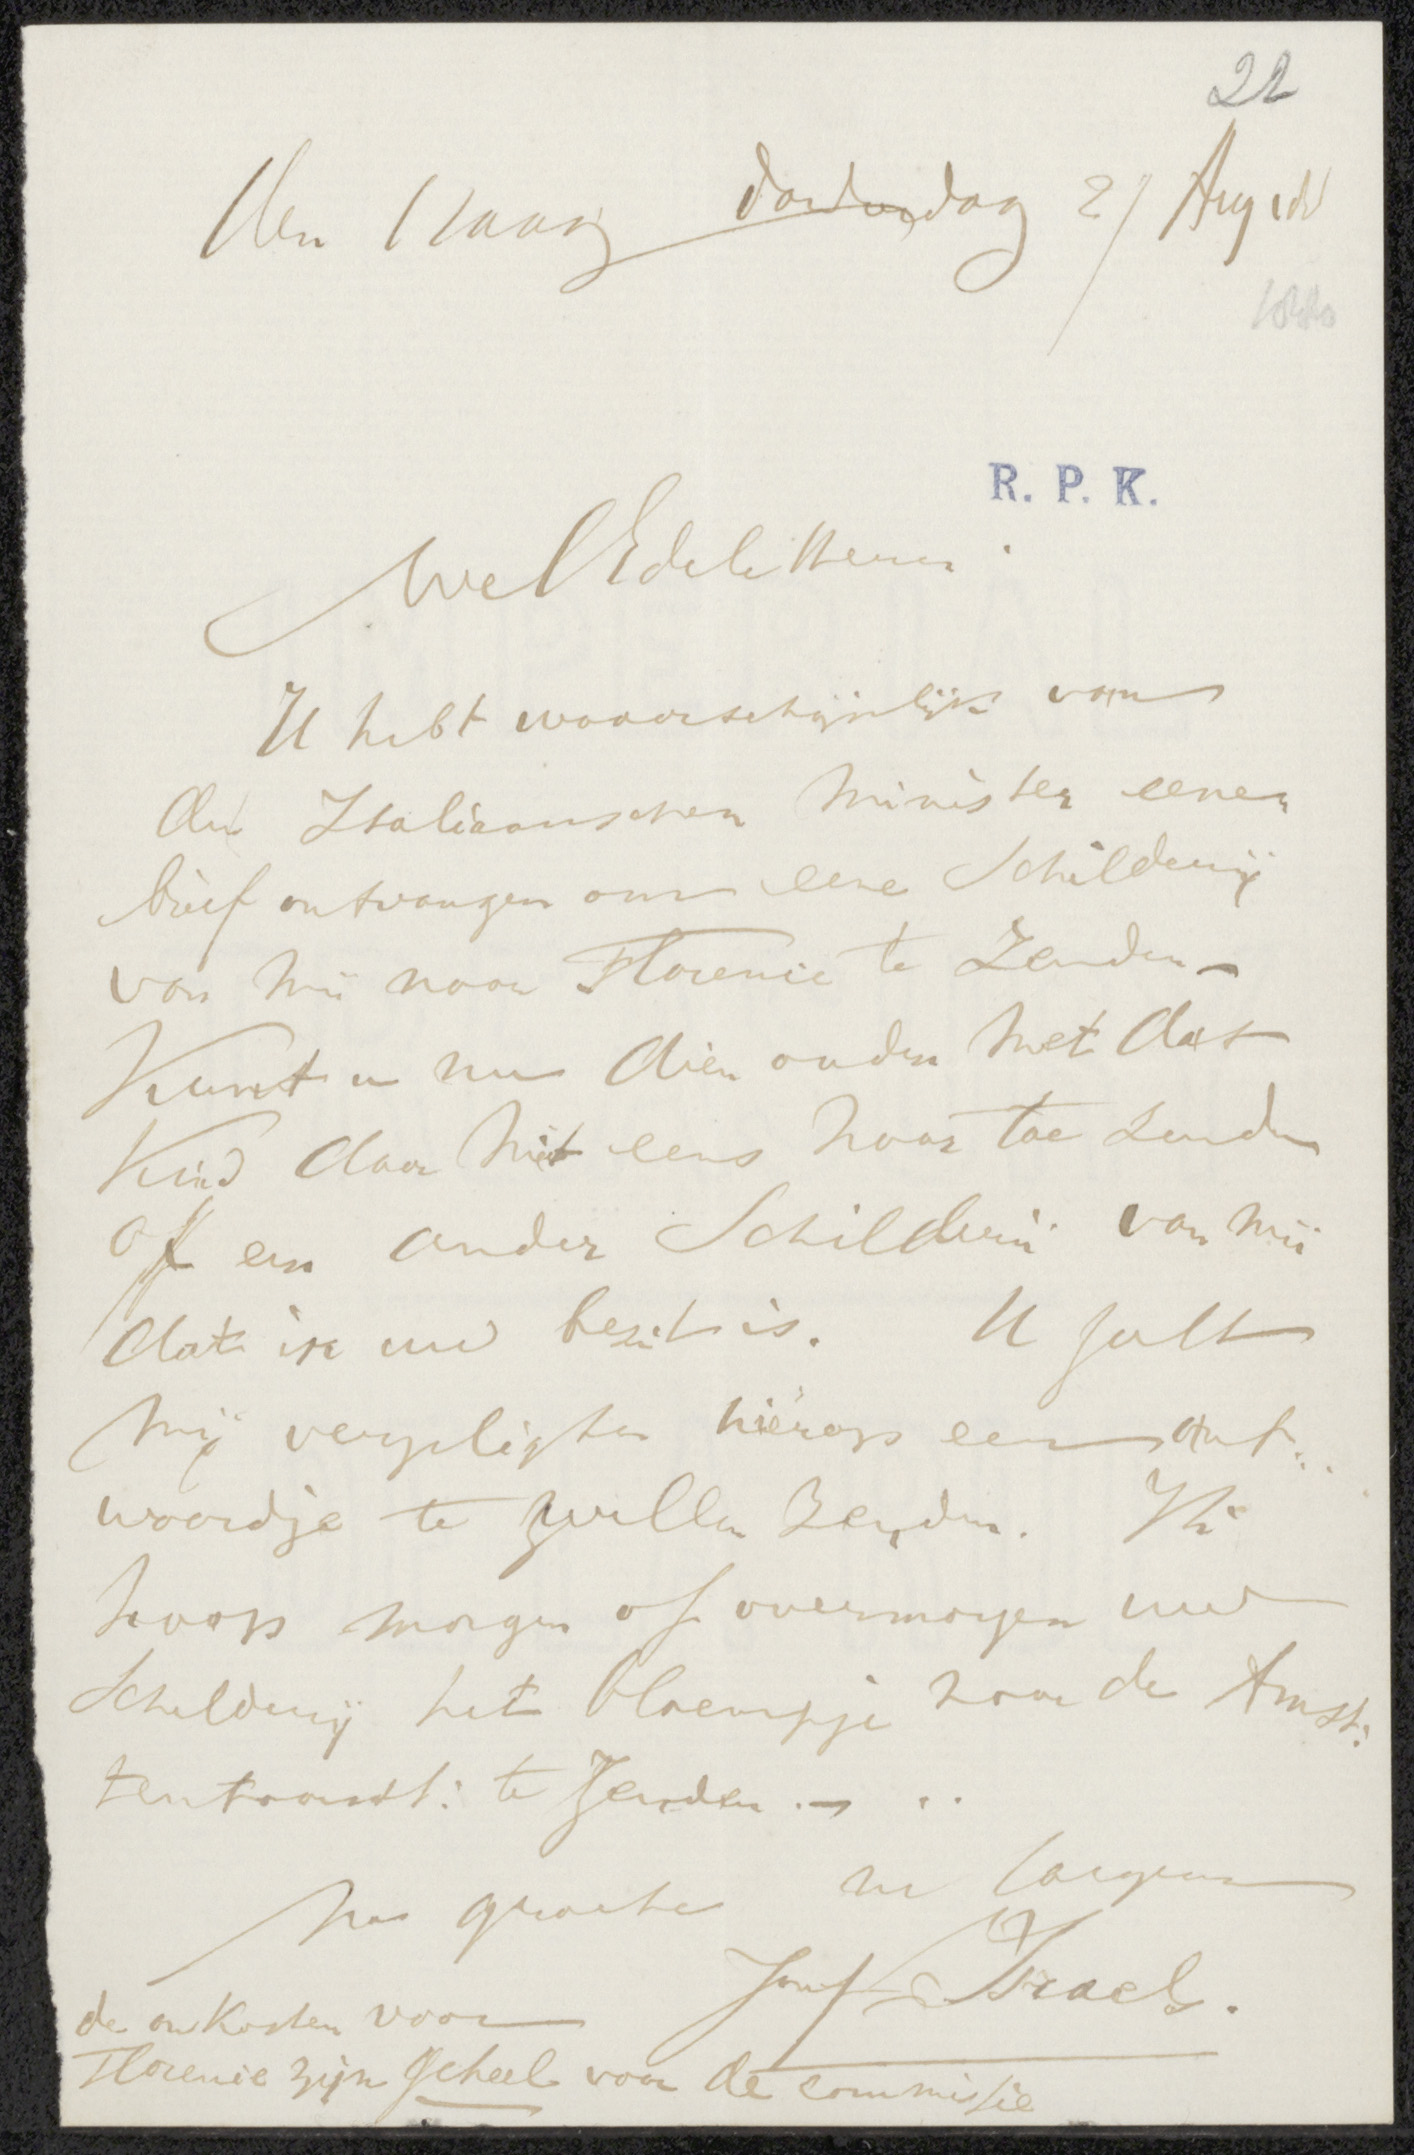 22
den Haag donderdag 27 Aug
1880
R. P. K.
WelEdele Heeren
U hebt waarschijnlijk van
den Italiaanschen Minister eenen
brief ontvangen om eene Schilderij
van mij naar Florence te Zenden –
Kunt u nu dien ouden met dat
Kind daar niet eens naar toe zenden
of een ander Schilderij van mij
dat in uw bezit is. U zult
mij verpligten hierop een ant..
woordje te willen zenden. Ik
hoop morgen of overmorgen uw
Schilderij het bloempje naar de Amst:
tentoonst: te Zenden. –
na groete
Jozef Israels.
de onkosten voor
Florence zijn geheel voor de commissie